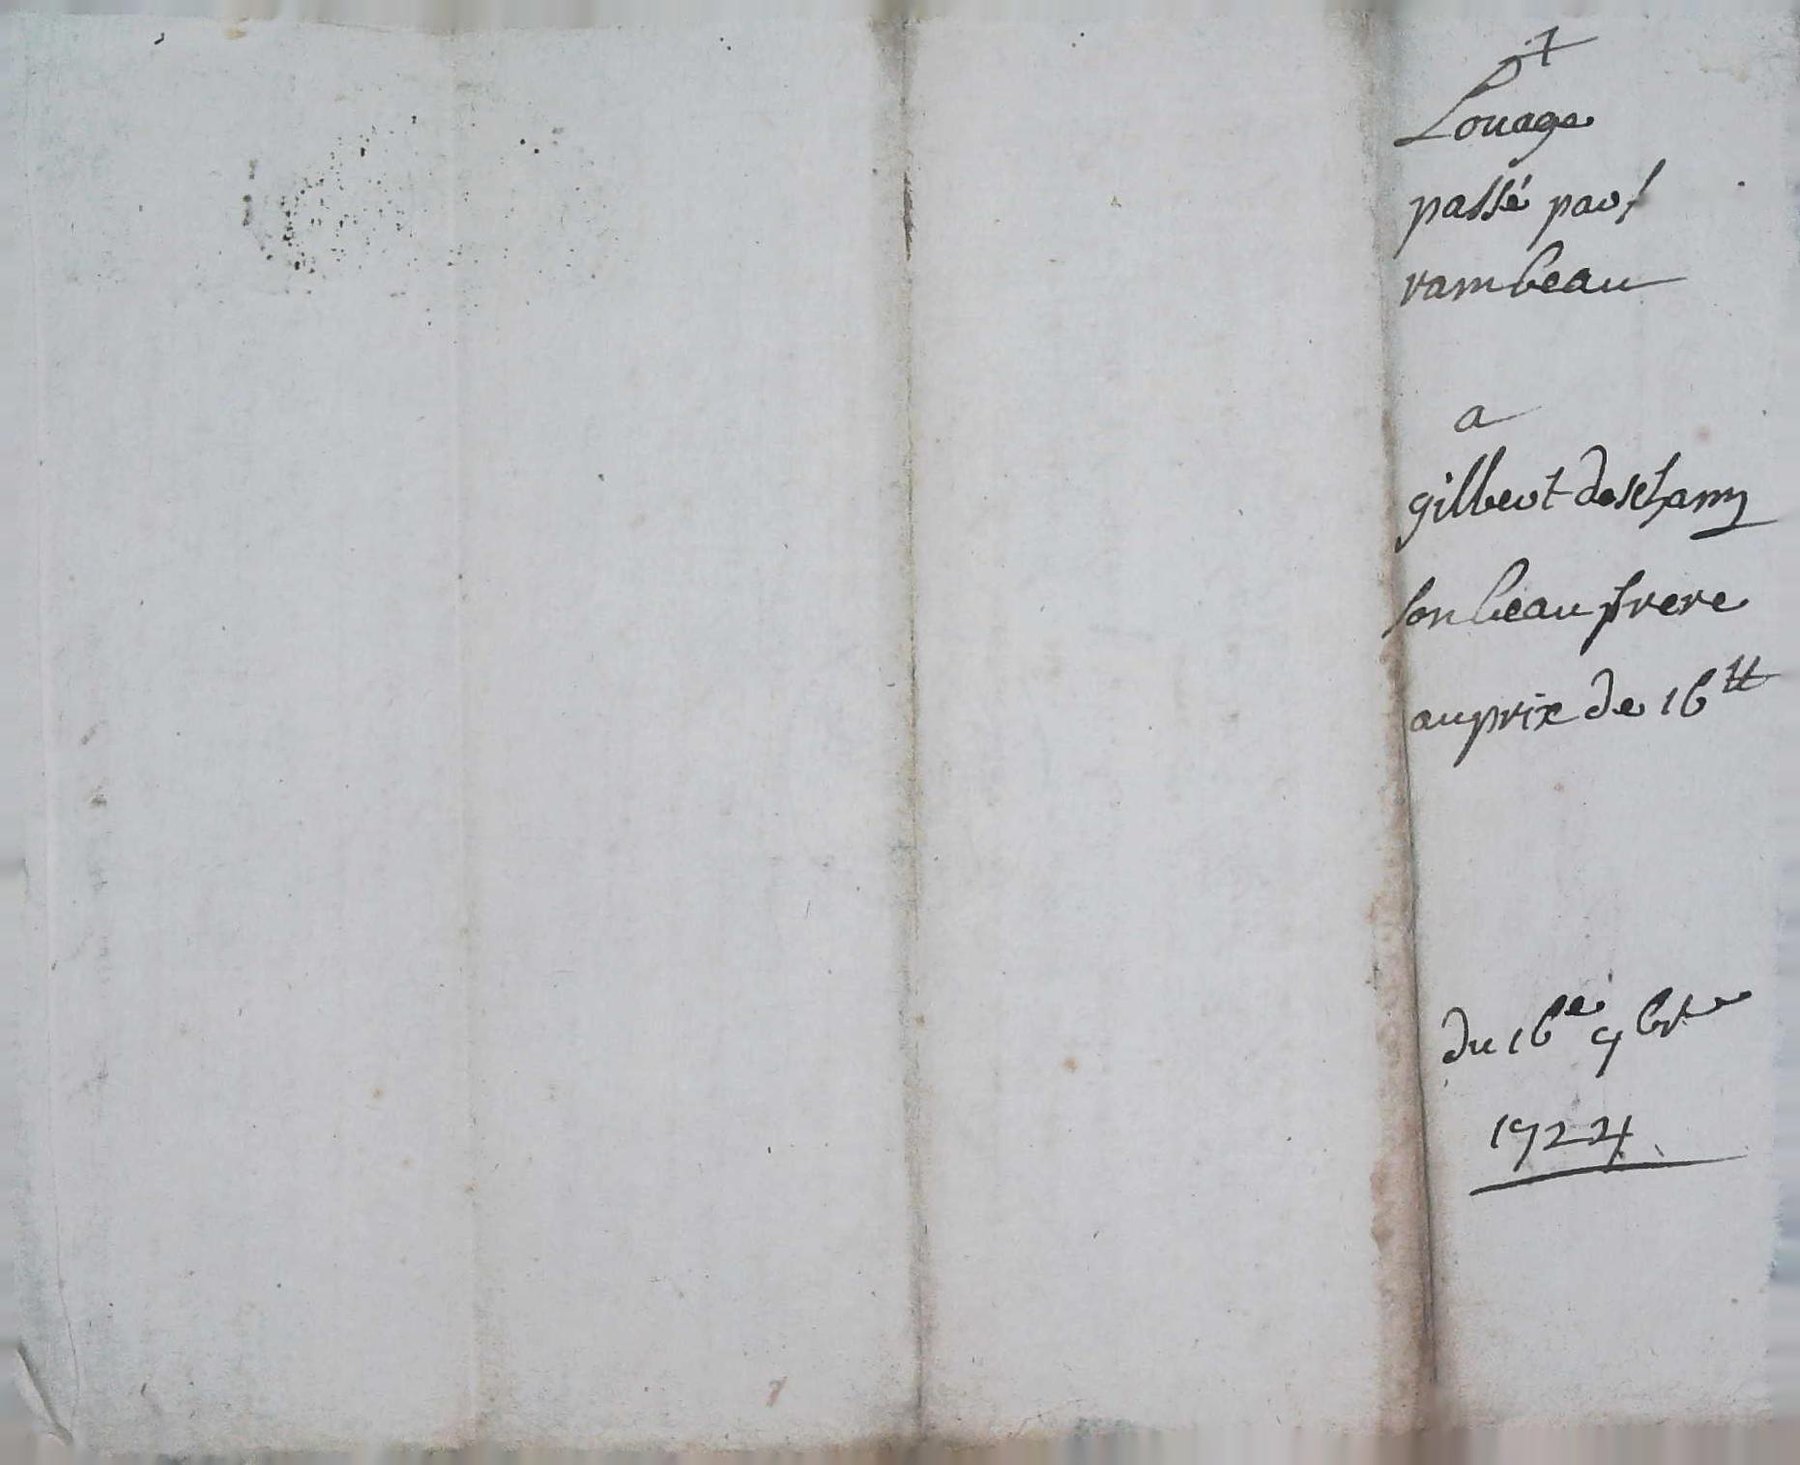 7
Louage
passé par
rambeau
a
gilbert deschamps
son beau frere
au prix de 16 ₶
du 16e 9bre
1724